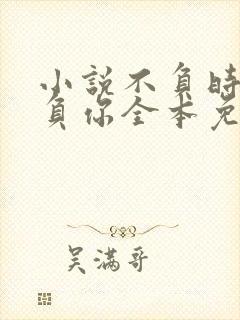 小說不負時
負你全本免
吴滿哥